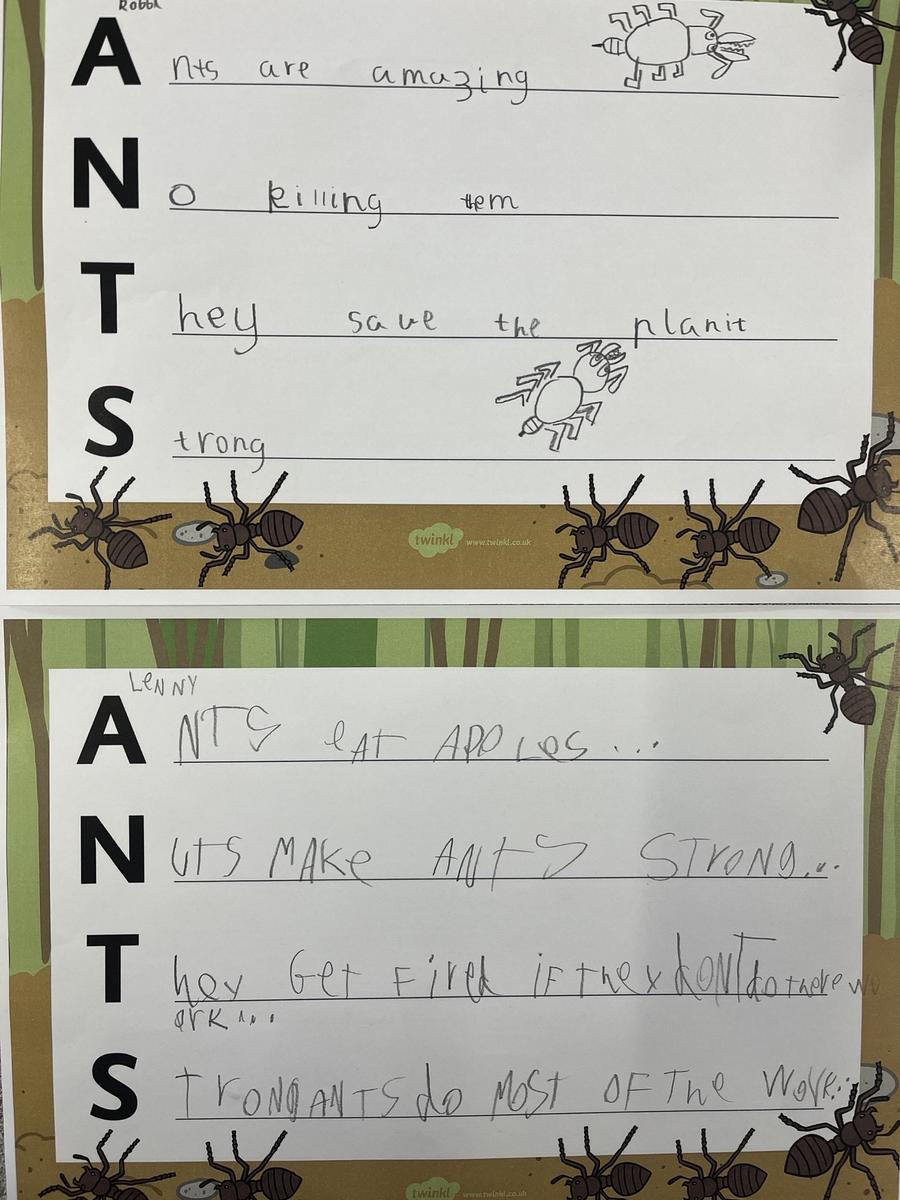 Robbi
Ants are amazing
No killing tem
They save the planit
Strong
twinkl www.twinkl.co.uk
LeNNY
ANTS eAT APPLes ...
NUTS MAKe ANTS STroNg...
They Get Fired iF they doNT do there w
ork...
STroNg ANTS do MOST OF The WOrk...
twinkl www.twinkl.co.uk